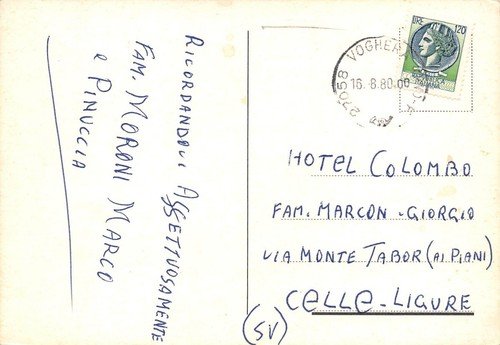 RICORDANDOVI AFFETTUOSAMENTE
FAM. MORONI MARCO
e PINUCCIA
LIRE 120
27058 VOGHERA
16.8.80.00
HOTEL COLOMBO
FAM. MARCON-GIORGIO
VIA MONTE TABOR (AI PIANI)
CELLE-LIGURE
(SV)